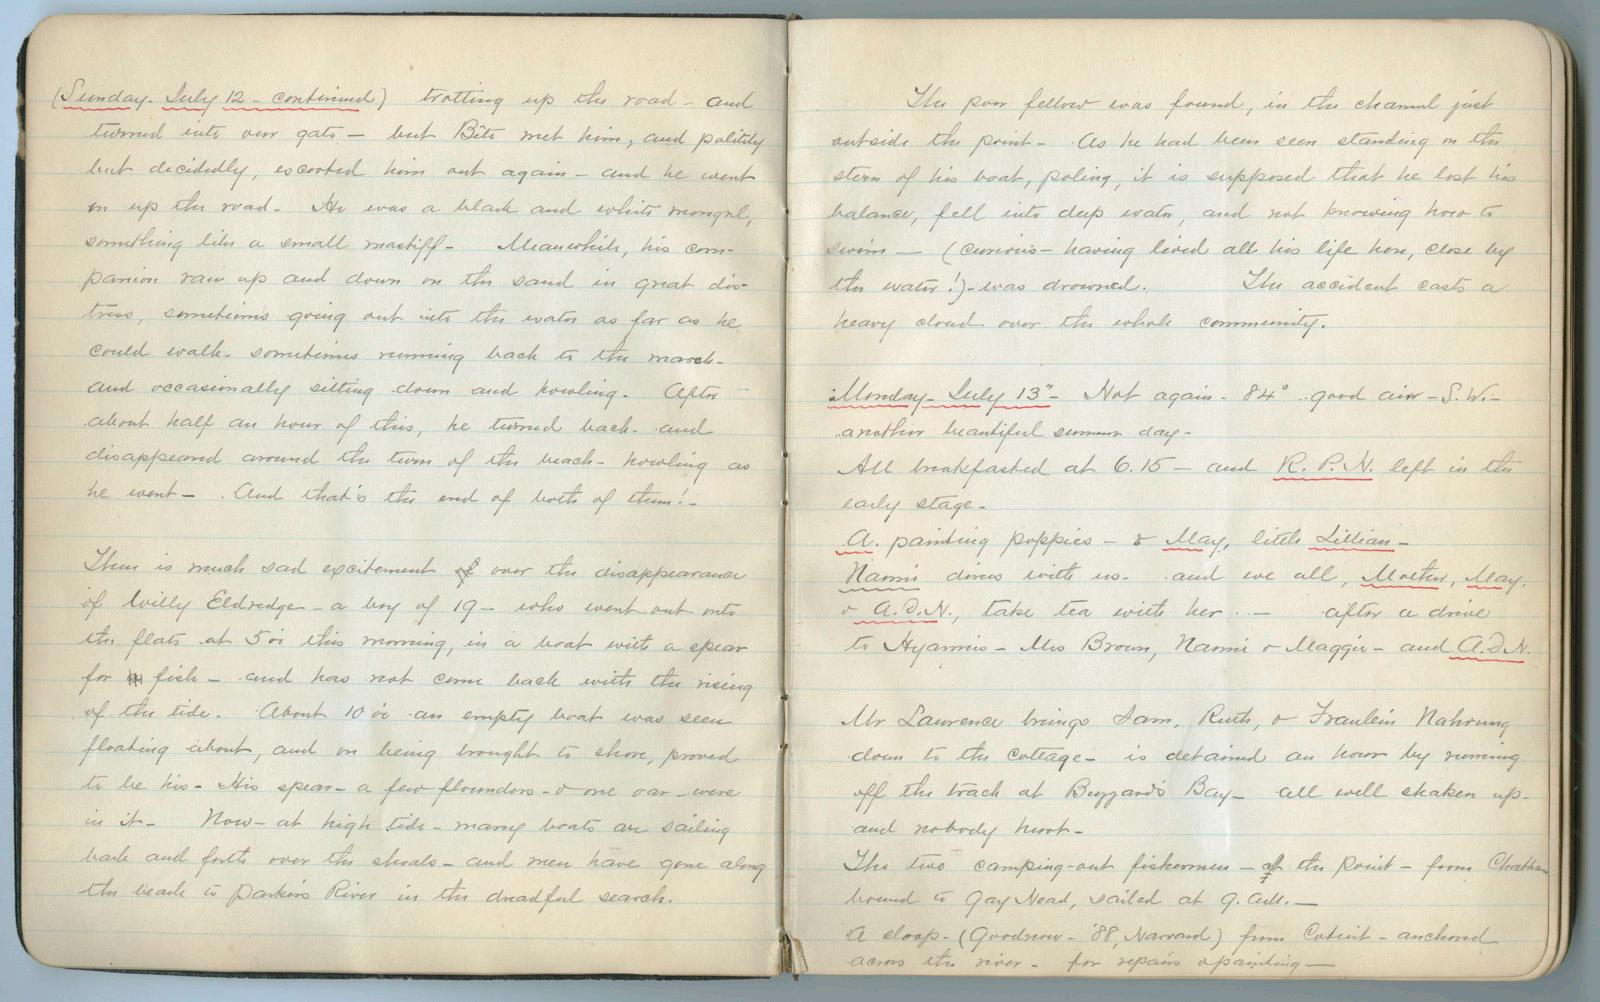 (Sunday. July 12 - continued) trotting up the road - and
turned into our gate - but Bête met him, and politely
but decidedly, escorted him out again - and he went
on up the road. He was a black and white mongrel,
something like a small mastiff - Meanwhile, his com-
panion ran up and down on the sand in great dis-
tress, sometimes going out into the water as far as he
could walk - sometimes running back to the marsh -
and occasionally sitting down and howling. After
about half an hour of this, he turned back - and
disappeared around the turn of the beach - howling as
he went - And that's the end of both of them! -
There is much sad excitement over the disappearance
of Willy Eldredge - a boy of 19 - who went out onto
the flats at 5 oc this morning, in a boat with a spear
for fish - and has not come back with the rising
of the tide. About 10 oc an empty boat was seen
floating about, and on being brought to shore, proved
to be his - His spear - a few flounders - & one oar - were
in it - Now - at high tide - many boats are sailing
back and forth over the shoals - and men have gone along
the beach to Parker's River in the dreadful search.
The poor fellow was found, in the channel just
outside the point - As he had been seen standing on the
stern of his boat, poling, it is supposed that he lost his
balance, fell into deep water, and not knowing how to
swim - (curious - having lived all his life here, close by
the water!) - was drowned. The accident casts a
heavy cloud over the whole community.
Monday - July 13" - Hot again - 84° good air - S.W. -
another beautiful summer day -
All breakfasted at 6.15 - and R. P. N. left in the
early stage -
A. painting poppies - & May, little Lillian -
Nannie dines with us - and we all, Mother, May,
& A.D.N., take tea with her - after a drive
to Hyannis - Mrs Brown, Nannie & Maggie - and A.D.N.
Mr Laurence brings Sam, Ruth, & Fraulein Nahrung
down to the Cottage - is detained an hour by running
off the track at Buzzard's Bay - all well shaken up -
and nobody hurt -
The two camping-out fishermen - off the Point - from Chatham
bound to Gay Head, sailed at 9. a.m. -
A sloop - (Goodnow - '88, Harvard) from Cotuit - anchored
across the river - for repairs & painting -